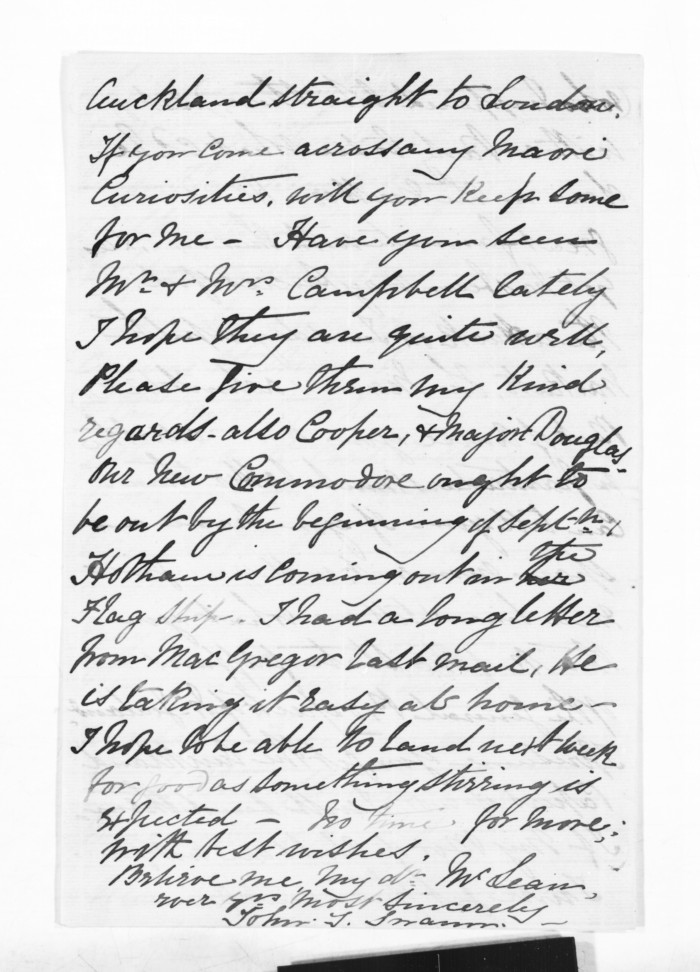 Auckland straight to London.
If you come across any Maori
Curiosities, will you keep some
for me - Have you seen
Mr. & Mrs. Campbell lately
I hope they are quite well,
Please give them my kind
regards - also Cooper, & Major Douglas.
Our new Commodore ought to
be out by the beginning of Septr.,
Hotham is coming out in the
Flag ship. I had a long letter
from MacGregor last mail, He
is taking it easy at home -
I hope to be able to land next week
for good as something stirring is
expected - No time for more,
with best wishes.
Believe me, my dr. McLean,
ever yrs. most sincerely
John T.